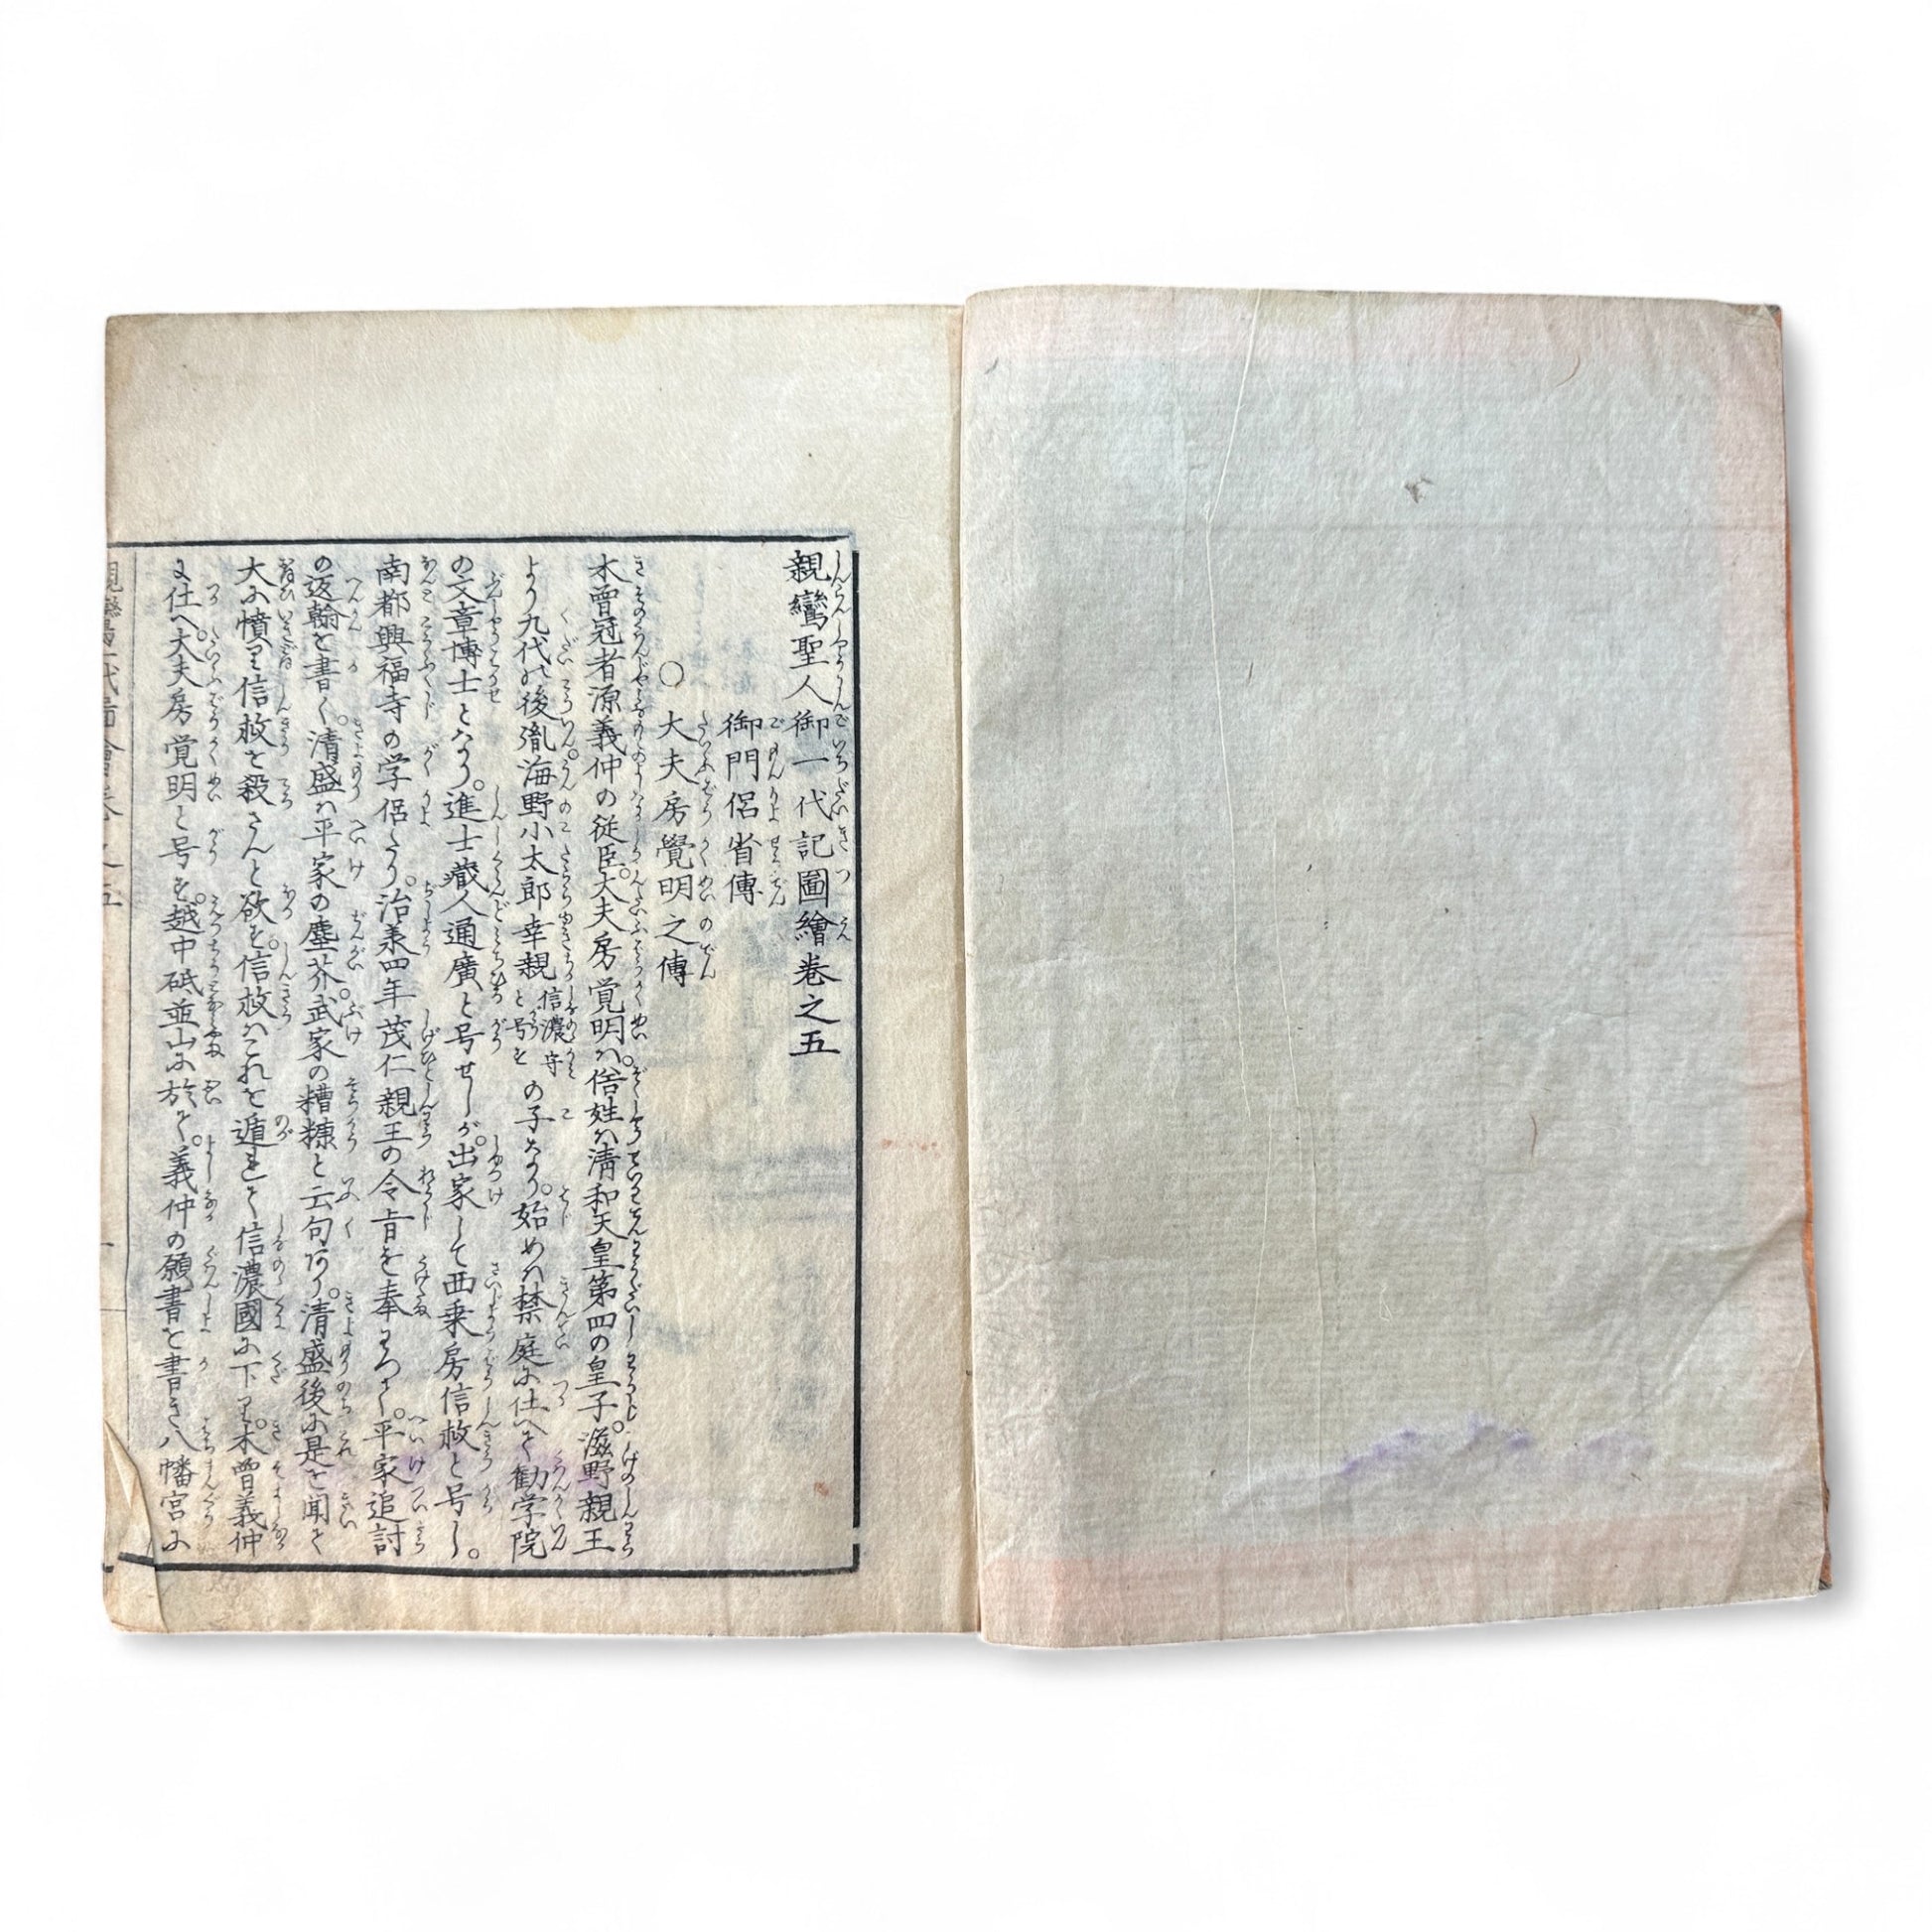 親鸞聖人御一代記圖繪巻之五
御門侶省傳
○
大夫房覺明之傳
木曽冠者源義仲の従臣。大夫房覚明ハ。俗姓ハ清和天皇第四の皇子。滋野親王
より九代の後胤。海野小太郎幸親と号す信濃守の子なり。始めハ禁庭に仕へて勧学院
の文章博士となり。進士蔵人通廣と号せしが。出家して西乗房信救と号し。
南都興福寺の学侶たり。治承四年茂仁親王の令旨を奉まつり。平家追討
の返翰を書く。清盛ハ平家の塵芥。武家の糟糠と云句あり。清盛後に是を聞て
大に憤り信救を殺さんと欲す。信救ハこれを遁れて信濃國に下り。木曽義仲
に仕へ。大夫房覚明と号す。越中砥並山に於て。義仲の願書を書き八幡宮に